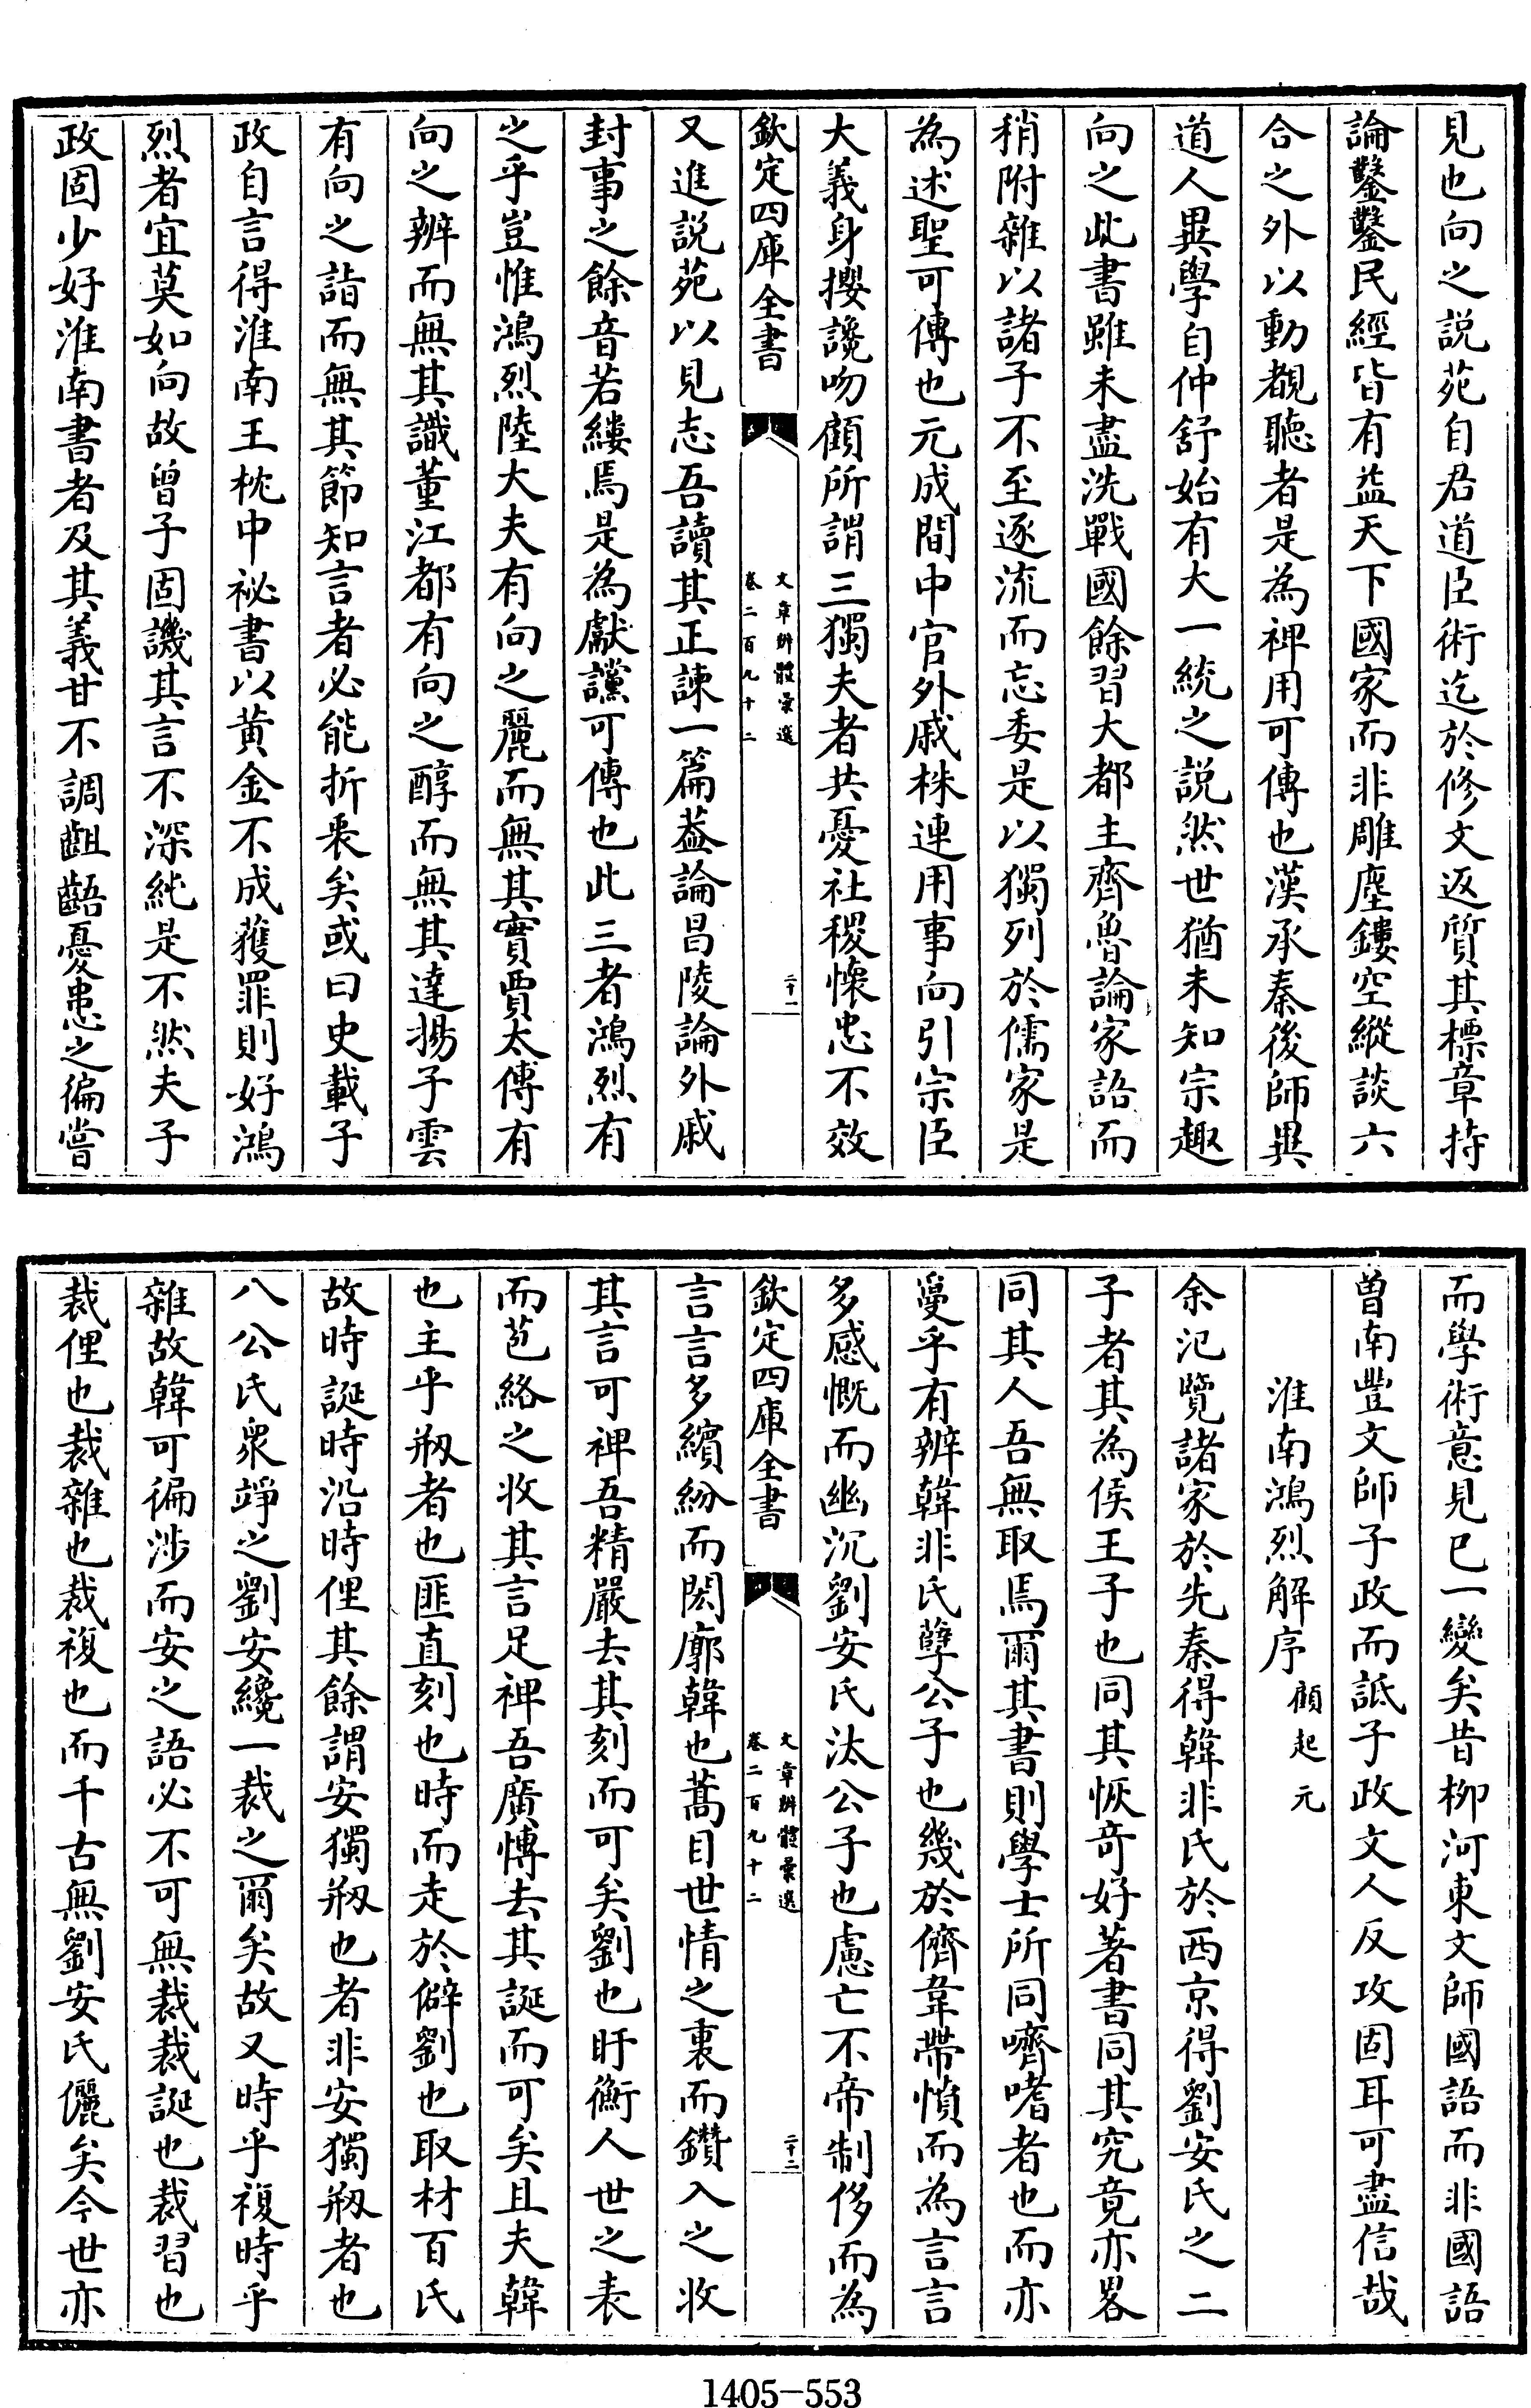 見也向之説苑自君道臣術迄於修文返質其標章持
論鑿鑿民經皆有益天下國家而非雕塵鏤空縱談六
合之外以動覩聽者是為裨用可傳也漢承秦後師異
道人異學自仲舒始有大一統之説然世猶未知宗趣
向之此書雖未盡洗戰國餘習大都主齊魯論家語而
稍附雜以諸子不至逐流而忘委是以獨列於儒家是
為述聖可傳也元成間中官外戚株連用事向引宗臣
大義身攖讒吻顧所謂三獨夫者共憂社稷懷忠不效
欽定四庫全書
文章辨體彙選
卷二百九十二
二十一
又進説苑以見志吾讀其正諫一篇葢論昌陵論外戚
封事之餘音若縷焉是為獻讜可傳也此三者鴻烈有
之乎豈惟鴻烈陸大夫有向之麗而無其實賈太傅有
向之辨而無其識董江都有向之醇而無其達揚子雲
有向之詣而無其節知言者必能折衷矣或曰史載子
政自言得淮南王枕中祕書以黄金不成獲罪則好鴻
烈者宜莫如向故曾子固譏其言不深純是不然夫子
政固少好淮南書者及其義甘不調齟齬憂患之徧嘗
而學術意見已一變矣昔柳河東文師國語而非國語
曾南豐文師子政而詆子政文人反攻固耳可盡信哉
淮南鴻烈解序 顧起元
余氾覽諸家於先秦得韓非氏於西京得劉安氏之二
子者其為侯王子也同其恢奇好著書同其究竟亦畧
同其人吾無取焉爾其書則學士所同嚌嗜者也而亦
蔓乎有辨韓非氏孽公子也幾於儕韋帶憤而為言言
多感慨而幽沉劉安氏汰公子也慮亡不帝制侈而為
欽定四庫全書
文章辨體彙選
卷二百九十二
二十二
言言多繽紛而閎廓韓也蒿目世情之裏而鑽入之收
其言可裨吾精嚴去其刻而可矣劉也盱衡人世之表
而苞絡之收其言足裨吾廣博去其誕而可矣且夫韓
也主乎剏者也匪直刻也時而走於僻劉也取材百氏
故時誕時沿時俚其餘謂安獨剏也者非安獨剏者也
八公氏衆竫之劉安纔一裁之爾矣故又時乎複時乎
雜故韓可徧涉而安之語必不可無裁裁誕也裁習也
裁俚也裁雜也裁複也而千古無劉安氏儷矣今世亦
1405-553